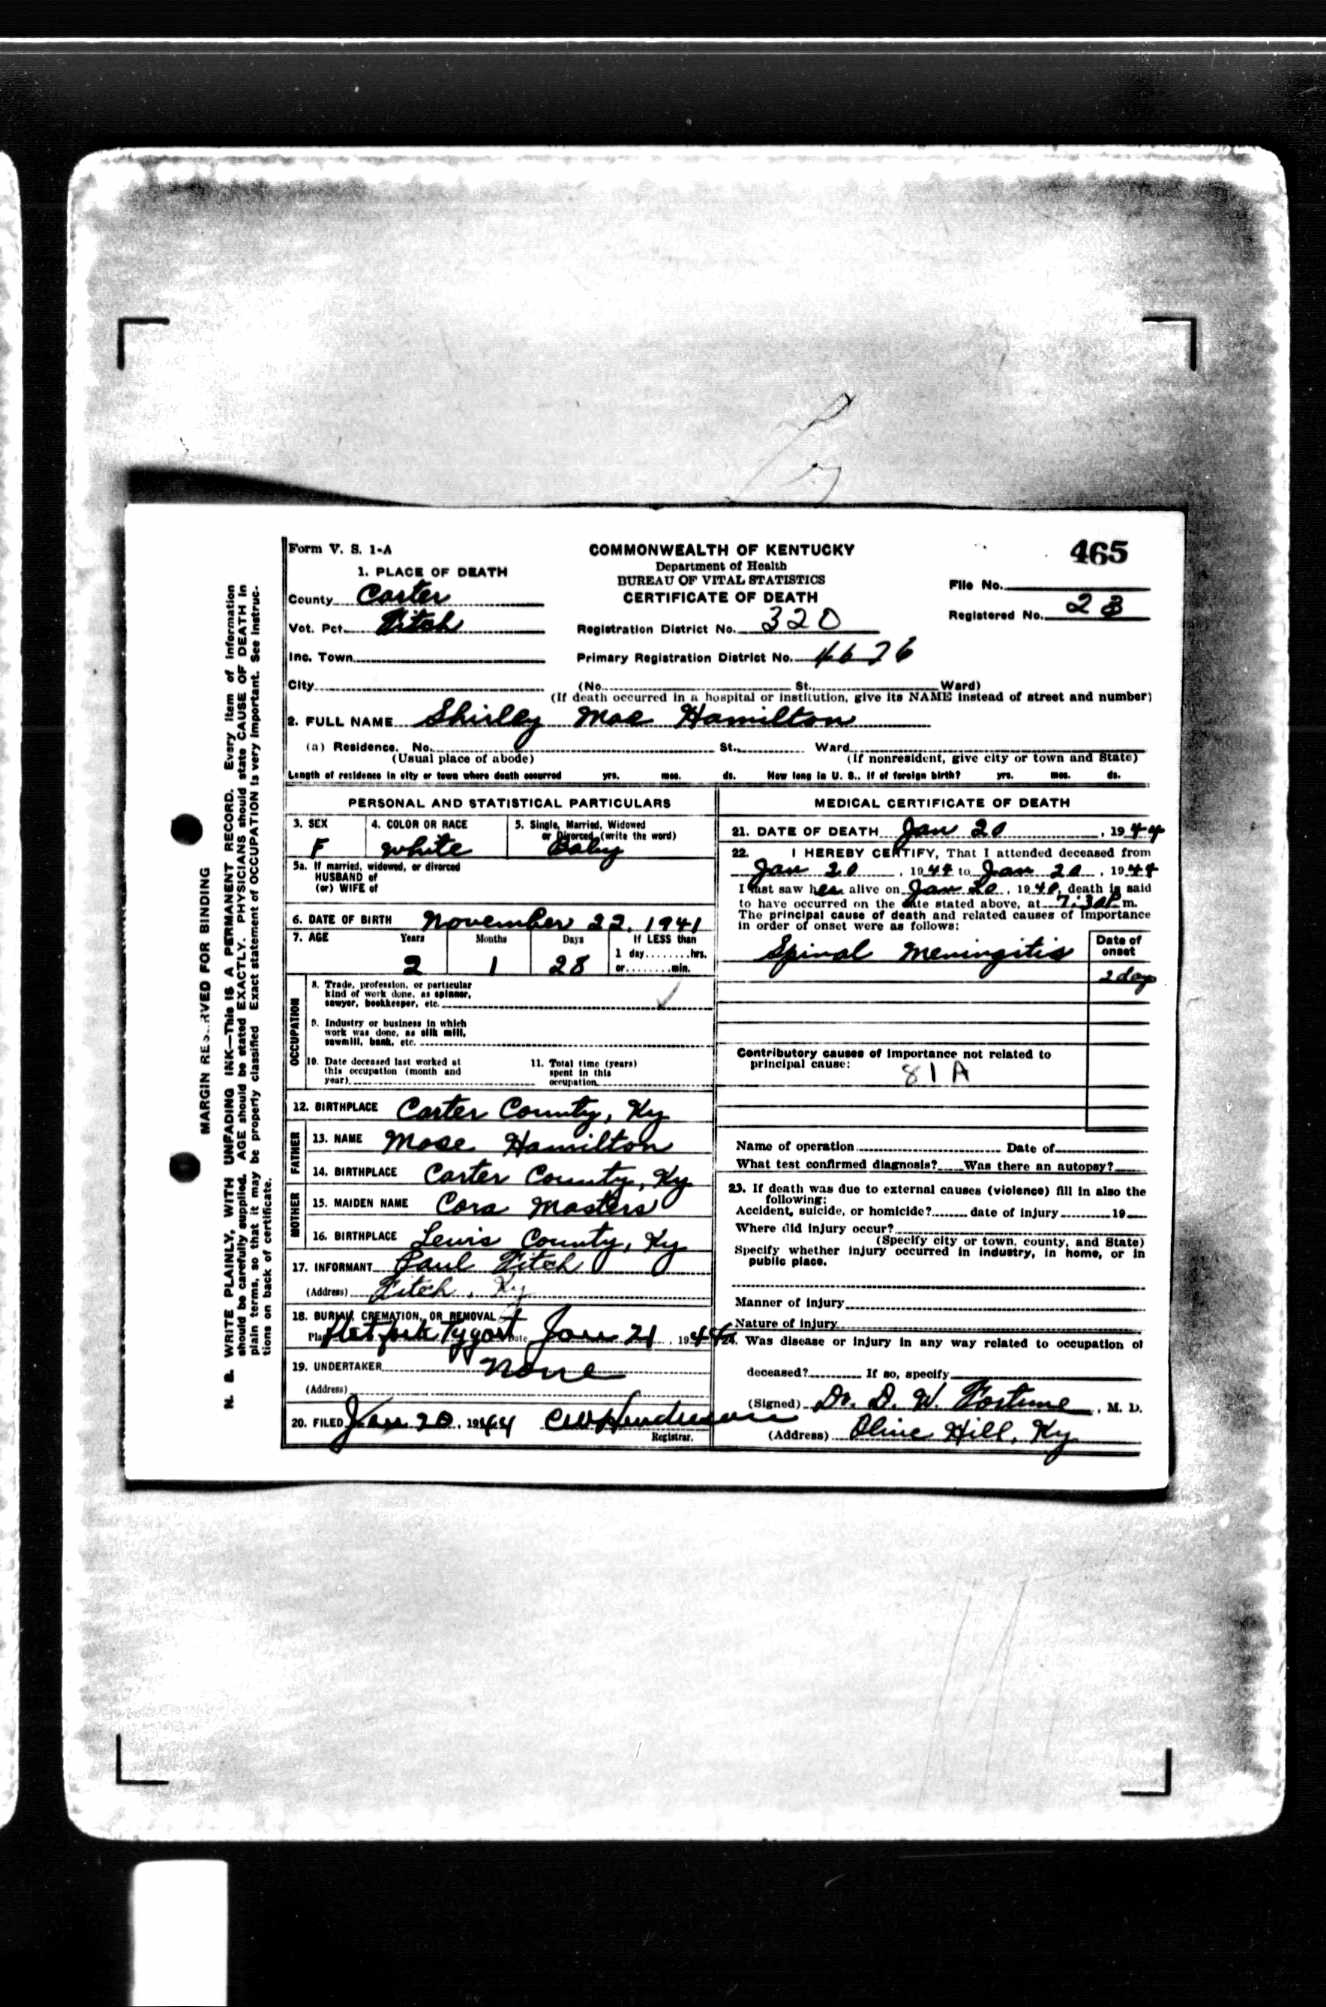 Form V. S. 1-A
COMMONWEALTH OF KENTUCKY
Department of Health
BUREAU OF VITAL STATISTICS
CERTIFICATE OF DEATH
465
File No.
Registered No. 28
1. PLACE OF DEATH
County Carter
Vot. Pct. Fitch
Inc. Town
City
Registration District No. 320
Primary Registration District No. 4676
(No. St., Ward)
(If death occurred in a hospital or institution, give its NAME instead of street and number)
2. FULL NAME Shirley Mae Hamilton
(a) Residence. No. St., Ward
(Usual place of abode) (If nonresident, give city or town and State)
Length of residence in city or town where death occurred yrs. mos. ds. How long in U. S., if of foreign birth? yrs. mos. ds.
PERSONAL AND STATISTICAL PARTICULARS
3. SEX F
4. COLOR OR RACE white
5. Single, Married, Widowed
or Divorced (write the word)
Baby
5a. If married, widowed, or divorced
HUSBAND of
(or) WIFE of
6. DATE OF BIRTH November 22, 1941
7. AGE Years Months Days If LESS than
1 day hrs.
or min.
2 1 28
OCCUPATION
8. Trade, profession, or particular
kind of work done, as spinner,
sawyer, bookkeeper, etc.
9. Industry or business in which
work was done, as silk mill,
sawmill, bank, etc.
10. Date deceased last worked at
this occupation (month and
year)
11. Total time (years)
spent in this
occupation
12. BIRTHPLACE Carter County, Ky
FATHER
13. NAME Mose Hamilton
14. BIRTHPLACE Carter County, Ky
MOTHER
15. MAIDEN NAME Cora Masters
16. BIRTHPLACE Lewis County, Ky
17. INFORMANT Paul Fitch
(Address) Fitch, Ky
18. BURIAL, CREMATION, OR REMOVAL
Place Tygart Date Jan 21, 1944
19. UNDERTAKER None
(Address)
20. FILED Jan 20, 1944 CW Henderson
Registrar.
MEDICAL CERTIFICATE OF DEATH
21. DATE OF DEATH Jan 20, 1944
22. I HEREBY CERTIFY, That I attended deceased from
Jan 20, 1944 to Jan 20, 1944
I last saw her alive on Jan 20, 1940, death is said
to have occurred on the date stated above, at 7:30P m.
The principal cause of death and related causes of importance
in order of onset were as follows:
Date of
onset
Spinal Meningitis
2 day
Contributory causes of importance not related to
principal cause:
81A
Name of operation Date of
What test confirmed diagnosis? Was there an autopsy?
23. If death was due to external causes (violence) fill in also the
following:
Accident, suicide, or homicide? date of injury 19
Where did injury occur?
(Specify city or town, county, and State)
Specify whether injury occurred in industry, in home, or in
public place.
Manner of injury
Nature of injury
24. Was disease or injury in any way related to occupation of
deceased? If so, specify
(Signed) Dr. D. W. Fortune, M. D.
(Address) Olive Hill, Ky
MARGIN RESERVED FOR BINDING
N. B. WRITE PLAINLY, WITH UNFADING INK—This IS A PERMANENT RECORD. Every item of information
should be carefully supplied. AGE should be stated EXACTLY. PHYSICIANS should state CAUSE OF DEATH in
plain terms, so that it may be properly classified. Exact statement of OCCUPATION is very important. See instruc-
tions on back of certificate.